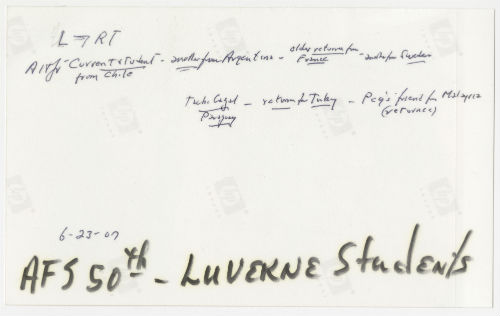 L → RT
Current student - another from Argentina - older return from
France - another from Sweden
from Chile
return from Turkey - Peg's friend from Malaysia
Paraguay (returnee)
6-23-07
AFS 50th - LUVERNE Students